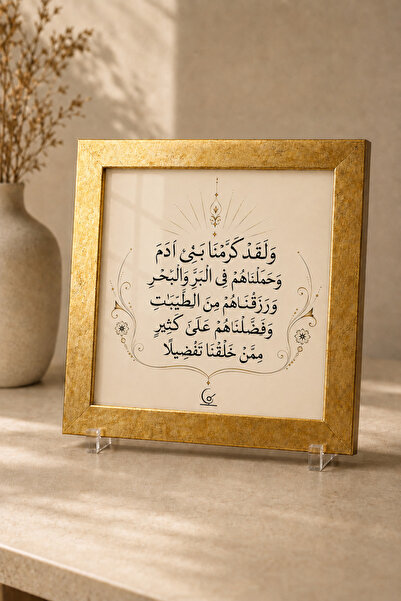 وَلَقَدْ كَرَّمْنَا بَنِيٓ اٰدَمَ
وَحَمَلْنَاهُمْ فِي الْبَرِّ وَالْبَحْرِ
وَرَزَقْنَاهُمْ مِنَ الطَّيِّبَاتِ
وَفَضَّلْنَاهُمْ عَلَىٰ كَثِيرٍ
مِمَّنْ خَلَقْنَا تَفْضِيلًا